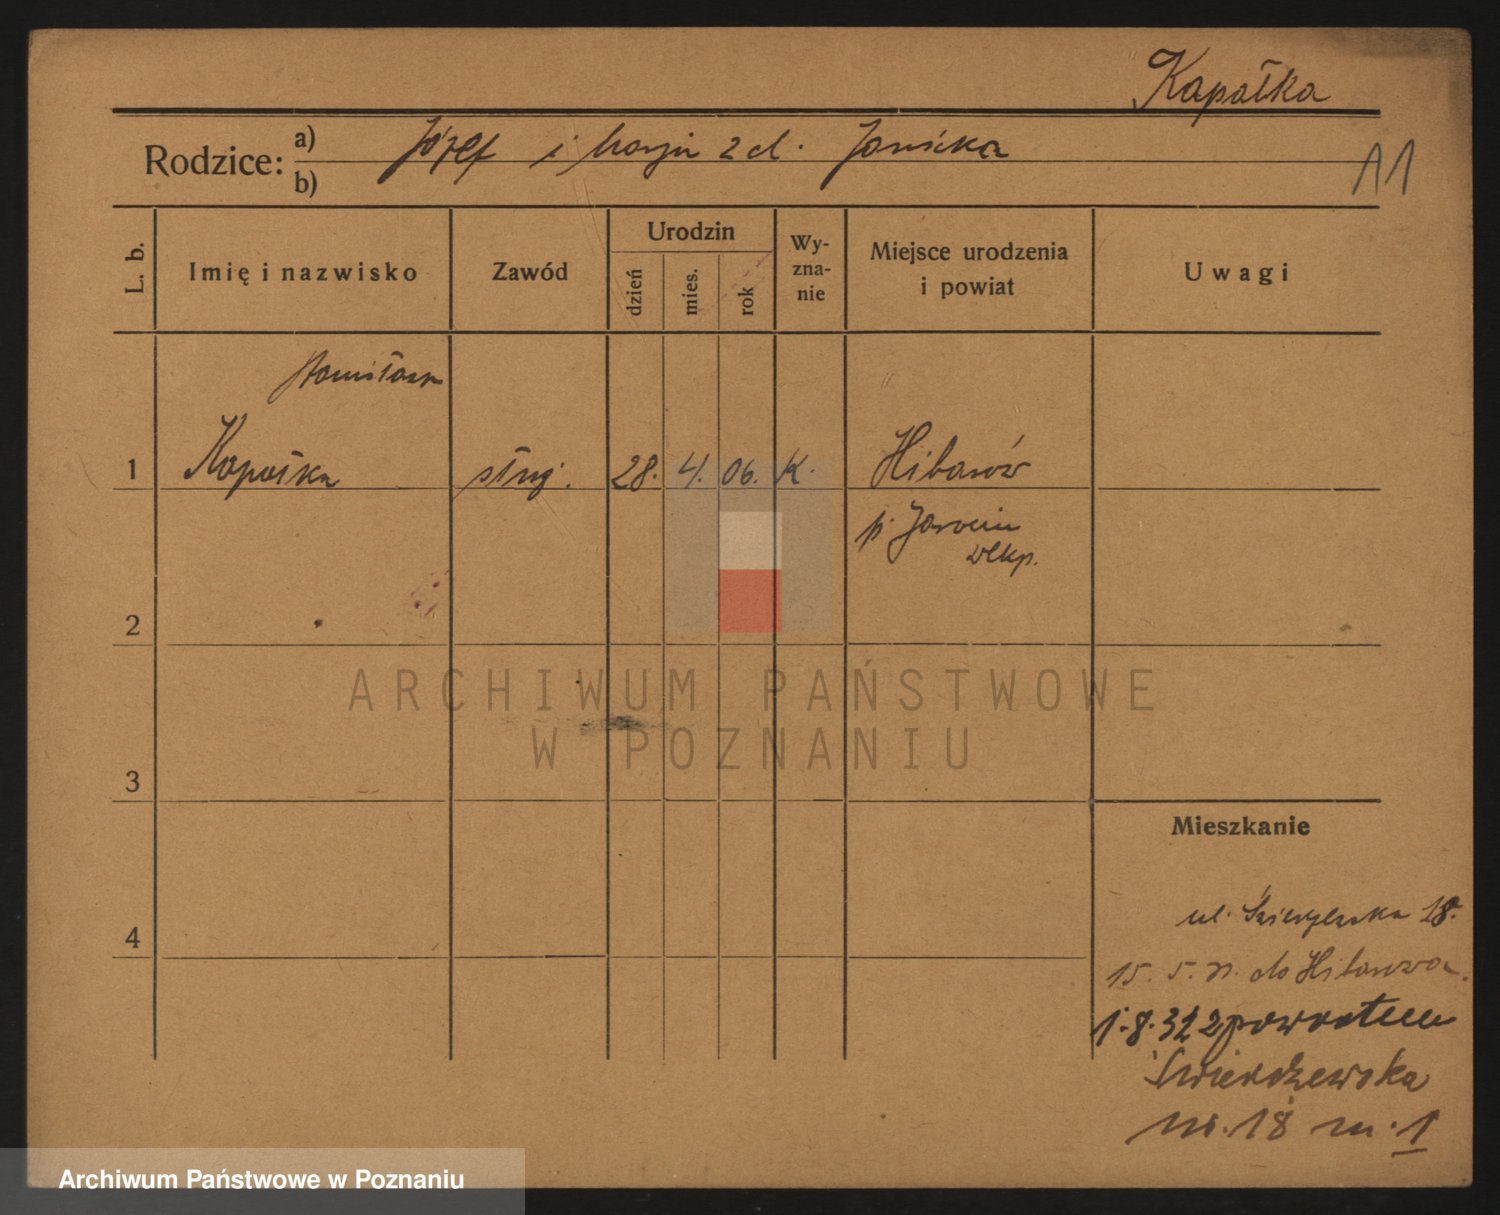 Kapałka
Rodzice: a) Józef i Marja z d. Janicka
b)
11
L. b.
Imię i nazwisko
Zawód
Urodzin
dzień
mies.
rok
Wy-
zna-
nie
Miejsce urodzenia
i powiat
Uwagi
Stanisława
1 Kapałka służ. 28. 4. 06. K. Hilarów
p. Jarocin
wlkp.
2
ARCHIWUM PAŃSTWOWE
W POZNANIU
3
Mieszkanie
4
ul. 18.
15. 5. do Hilarowa.
1.8.32 z powrotem
Świerczewska
nr. 18 m. 1
Archiwum Państwowe w Poznaniu